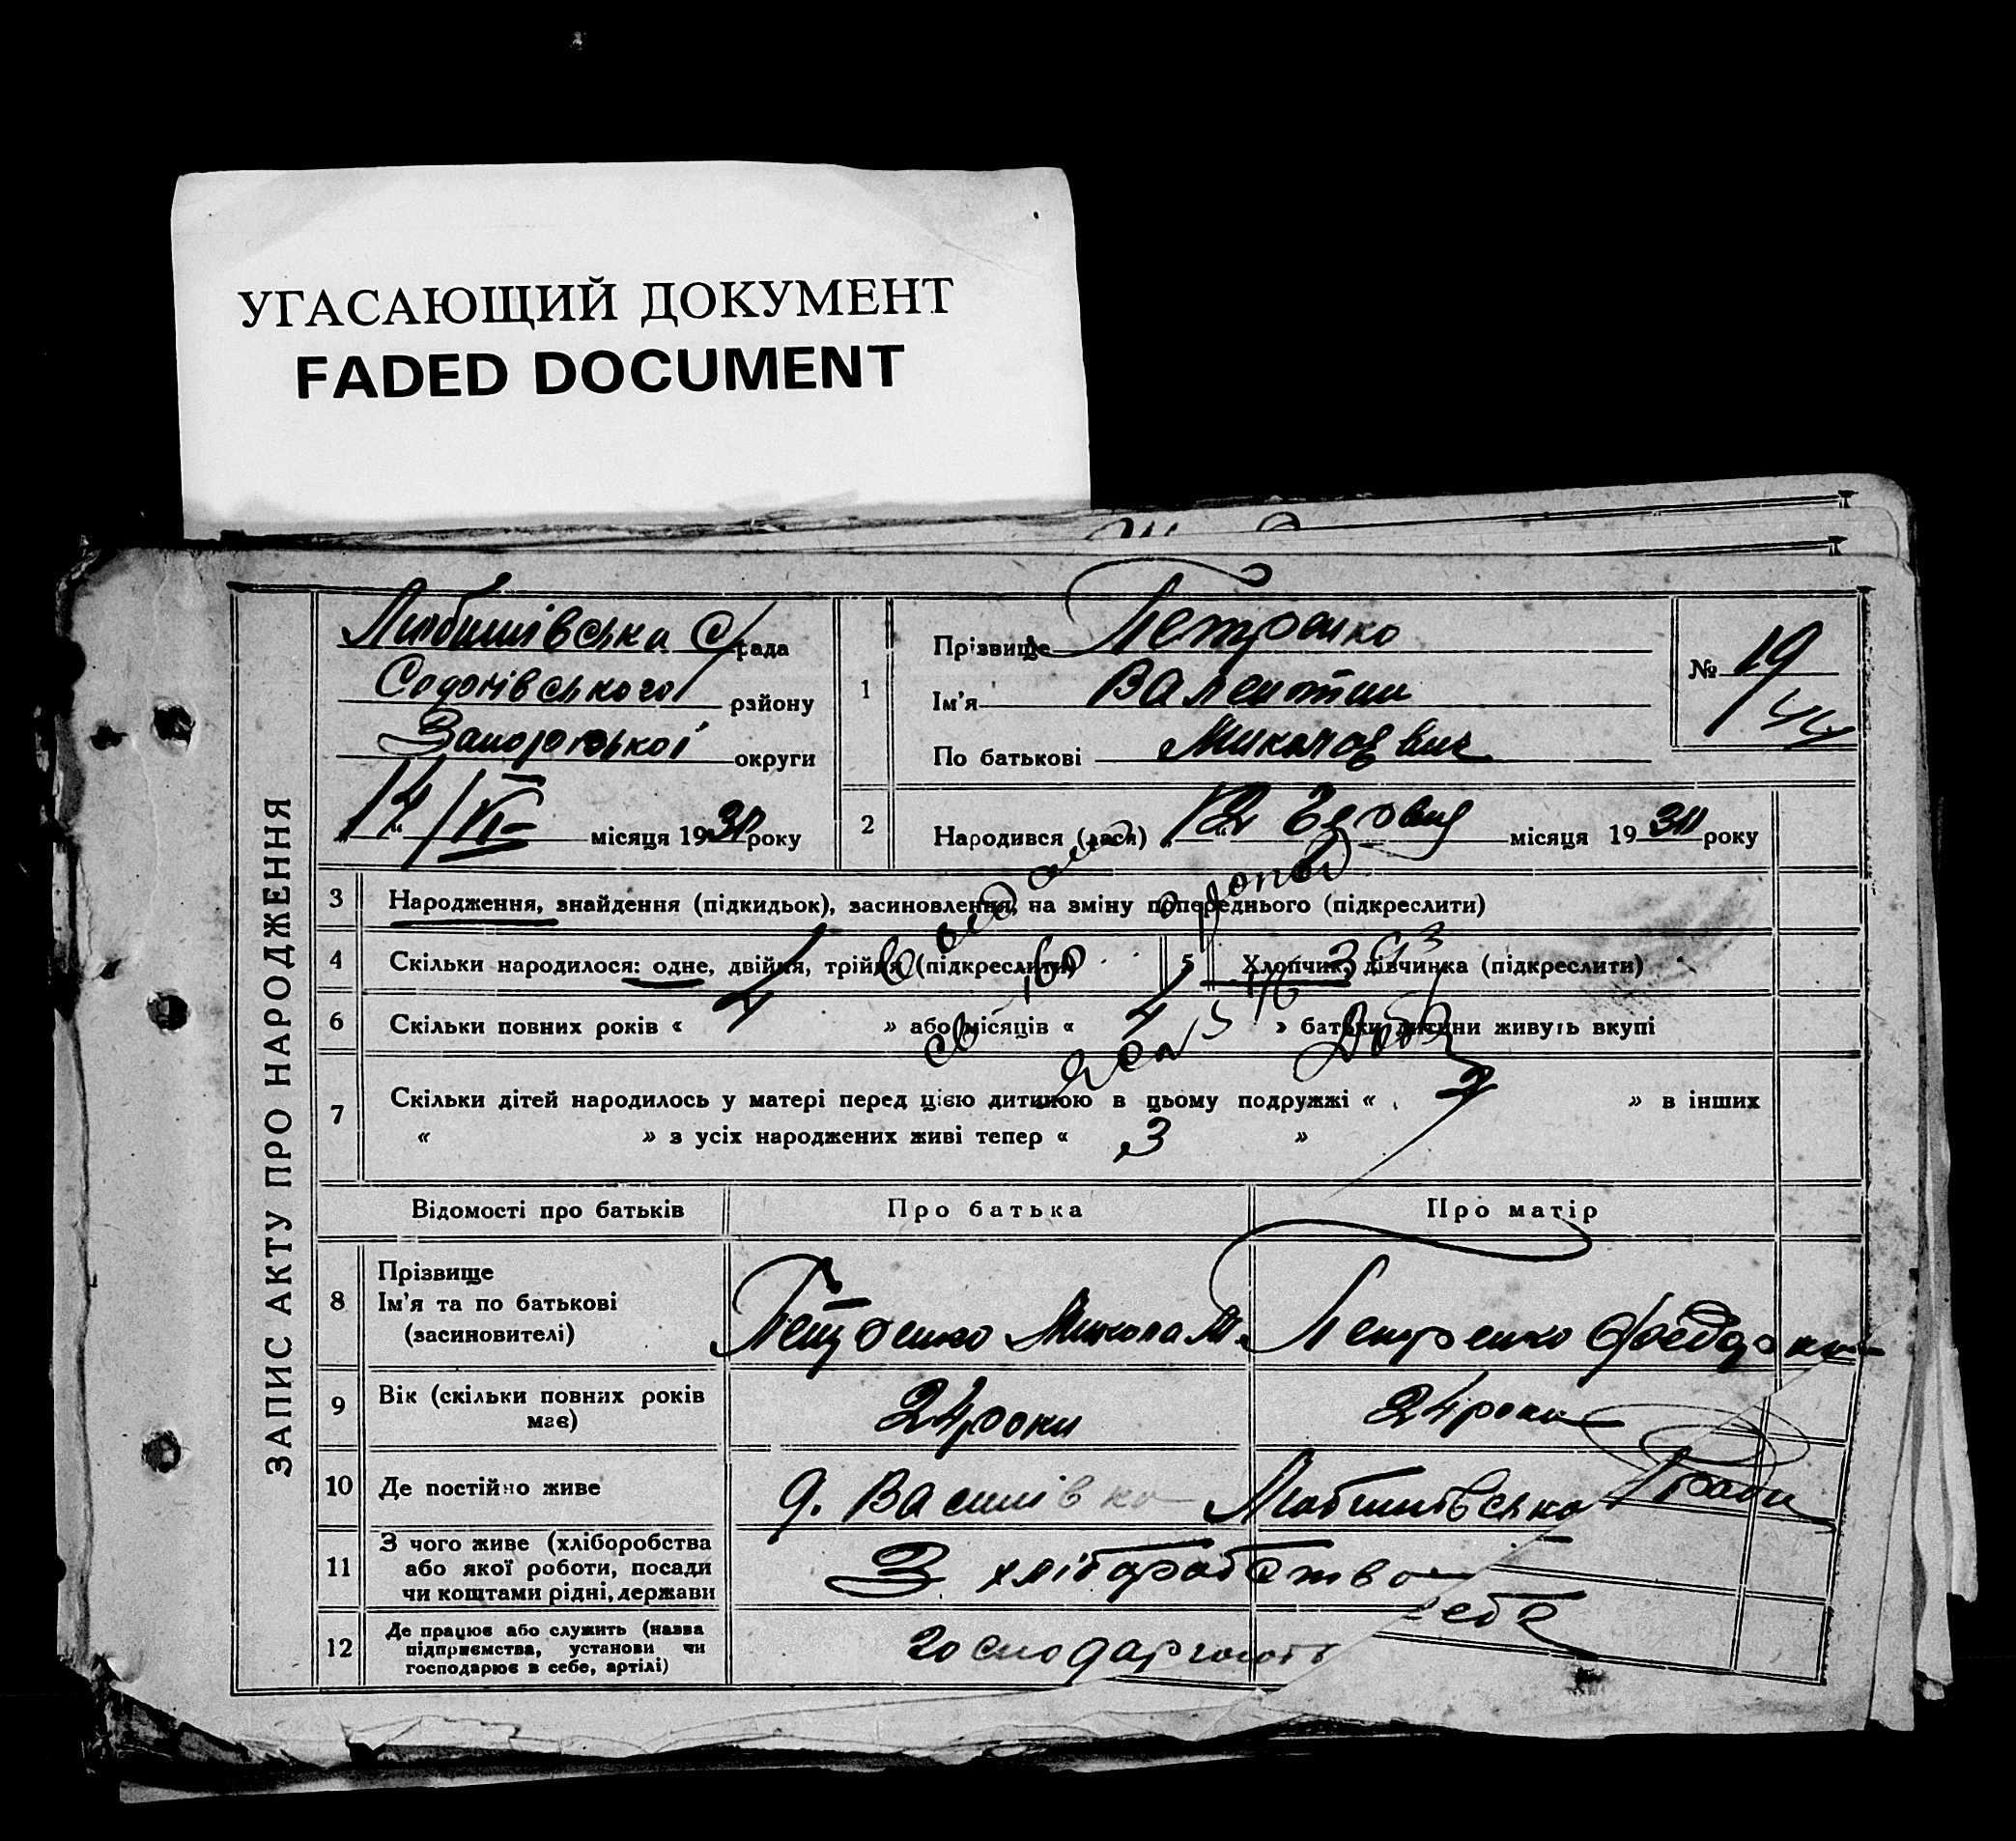 УГАСАЮЩИЙ ДОКУМЕНТ
FADED DOCUMENT
ЗАПИС АКТУ ПРО НАРОДЖЕННЯ
Любимівська С/рада
району
Запорізької округи
14/VI місяця 1930 року
1
Прізвище Петренко
Ім'я Валентин
По батькові Миколаєвич
№ 19
2
Народився (лася) 12 Червня місяця 1930 року
3 Народження, знайдення (підкидьок), засиновлення, на зміну попереднього (підкреслити)
4 Скільки народилося: одне, двійня, трійня (підкреслити)
5 Хлопчик, дівчинка (підкреслити)
6 Скільки повних років « 4 » або місяців « 4 » батьки дитини живуть вкупі
7 Скільки дітей народилось у матері перед цією дитиною в цьому подружжі « 2 » в інших
« » з усіх народжених живі тепер « 3 »
Відомості про батьків Про батька Про матір
8 Прізвище
Ім'я та по батькові
(засиновителі)
Петренко Микола М. Петренко
9 Вік (скільки повних років
має)
24 роки 24 роки
10 Де постійно живе д. Василівка Любимівська С/ради
11 З чого живе (хліборобства
або якої роботи, посади
чи коштами рідні, держави
З хліборобства
12 Де працює або служить (назва
підприємства, установи чи
господарює в себе, артілі)
господарюють